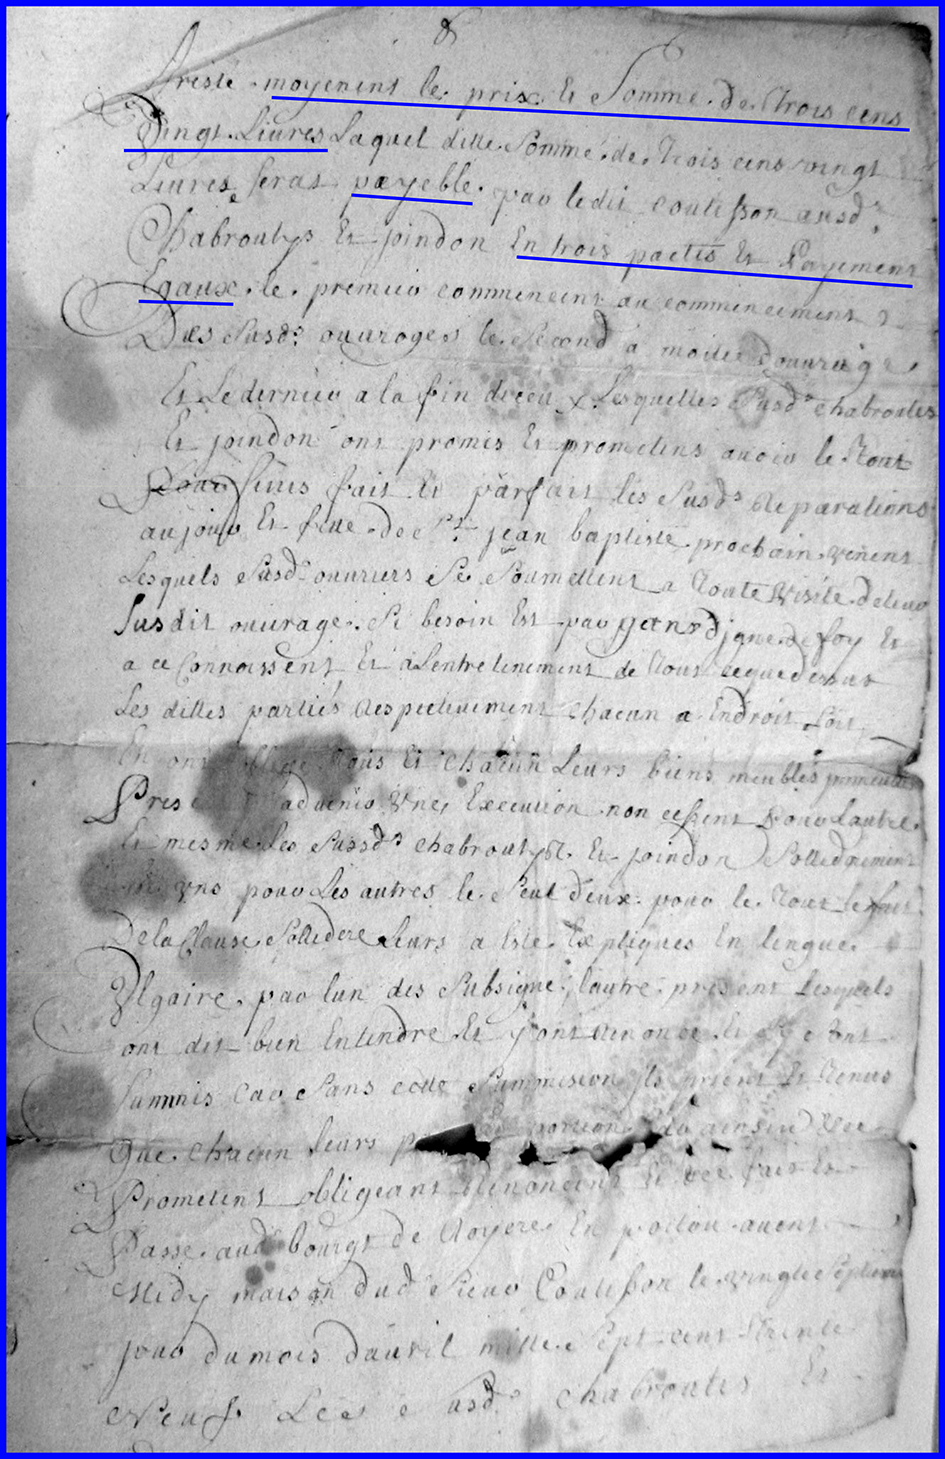 &
Arresté moyenent le prix Et Somme de Trois cens
Vingt Livres Laquel ditte Somme de Trois cens vingt
Livres seras payeble par ledit coutisson ausd.
Chabroutys Et joindon En trois pactes Et Payement
Egaux le premier commencent au commencement
Des Susd. ouvrages le Second a moitié d'ouvrage
Et Le dernier a la fin diceux Lesquelles Susd. chabroutes
Et joindon ont promis Et prometens avoir le Tout
finis fait Et parfait les Susds Reparations
au jour Et fete de St. jean baptiste prochain venent
Lesquels Susd. ouvriers Se Soumettent a Toute Visite de leur
Susdit ouvrage Si besoin Est par gens digne de foy Et
a ce Connoissent Et a L'entretenement de Tout ce que dessus
Les dittes parties Respectivement chacun a Endroit Soit
En ont Tous Et chacun Leurs biens meubles
Pres advenir Une Execution non cessent Pour Lautre
Et mesme Les Sussds chabroutys Et joindon Sollidairement
uns pour Les autres le Seul d'eux pour le Tout
De la Clause Sollidere Leurs a Este Expliqués En lengue
Vlgaire par lun des Subsigné lautre present Lesquels
ont dit bien Entendre Et y ont Renoncé Et Ce Sont
Summis Car Sans cette Summission ils Et Tenus
Que chacun leurs portion
Prometent obligeant Renoncent Et fait Et
Passé aud. bourgt de Royere En poitou avent
Midy maison dud. Sieur Coutisson le vingte Septieme
jour du mois d'avril mille Sept cent Trente
Neuf Les Susd. chabroutes Et